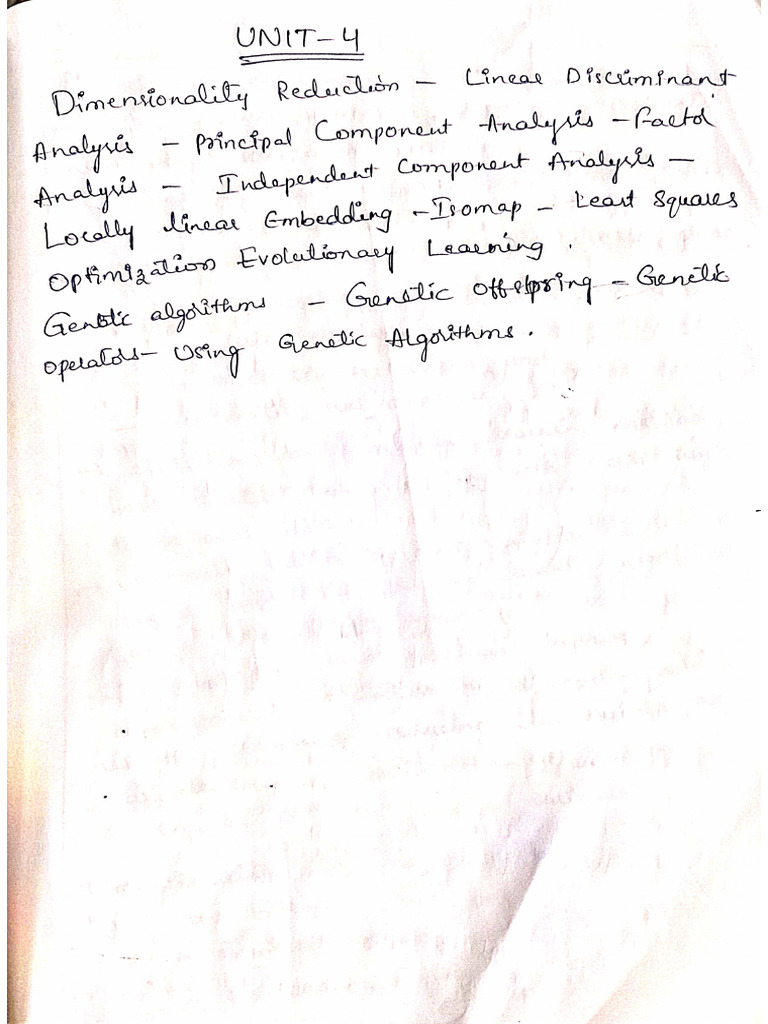 UNIT-4
Dimensionality Reduction - Linear Discriminant
Analysis - Principal Component Analysis - Factor
Analysis - Independent Component Analysis -
Locally linear Embedding - Isomap - Least Squares
Optimization Evolutionary Learning.
Genetic algorithms - Genetic Offspring - Genetic
operators - Using Genetic Algorithms.